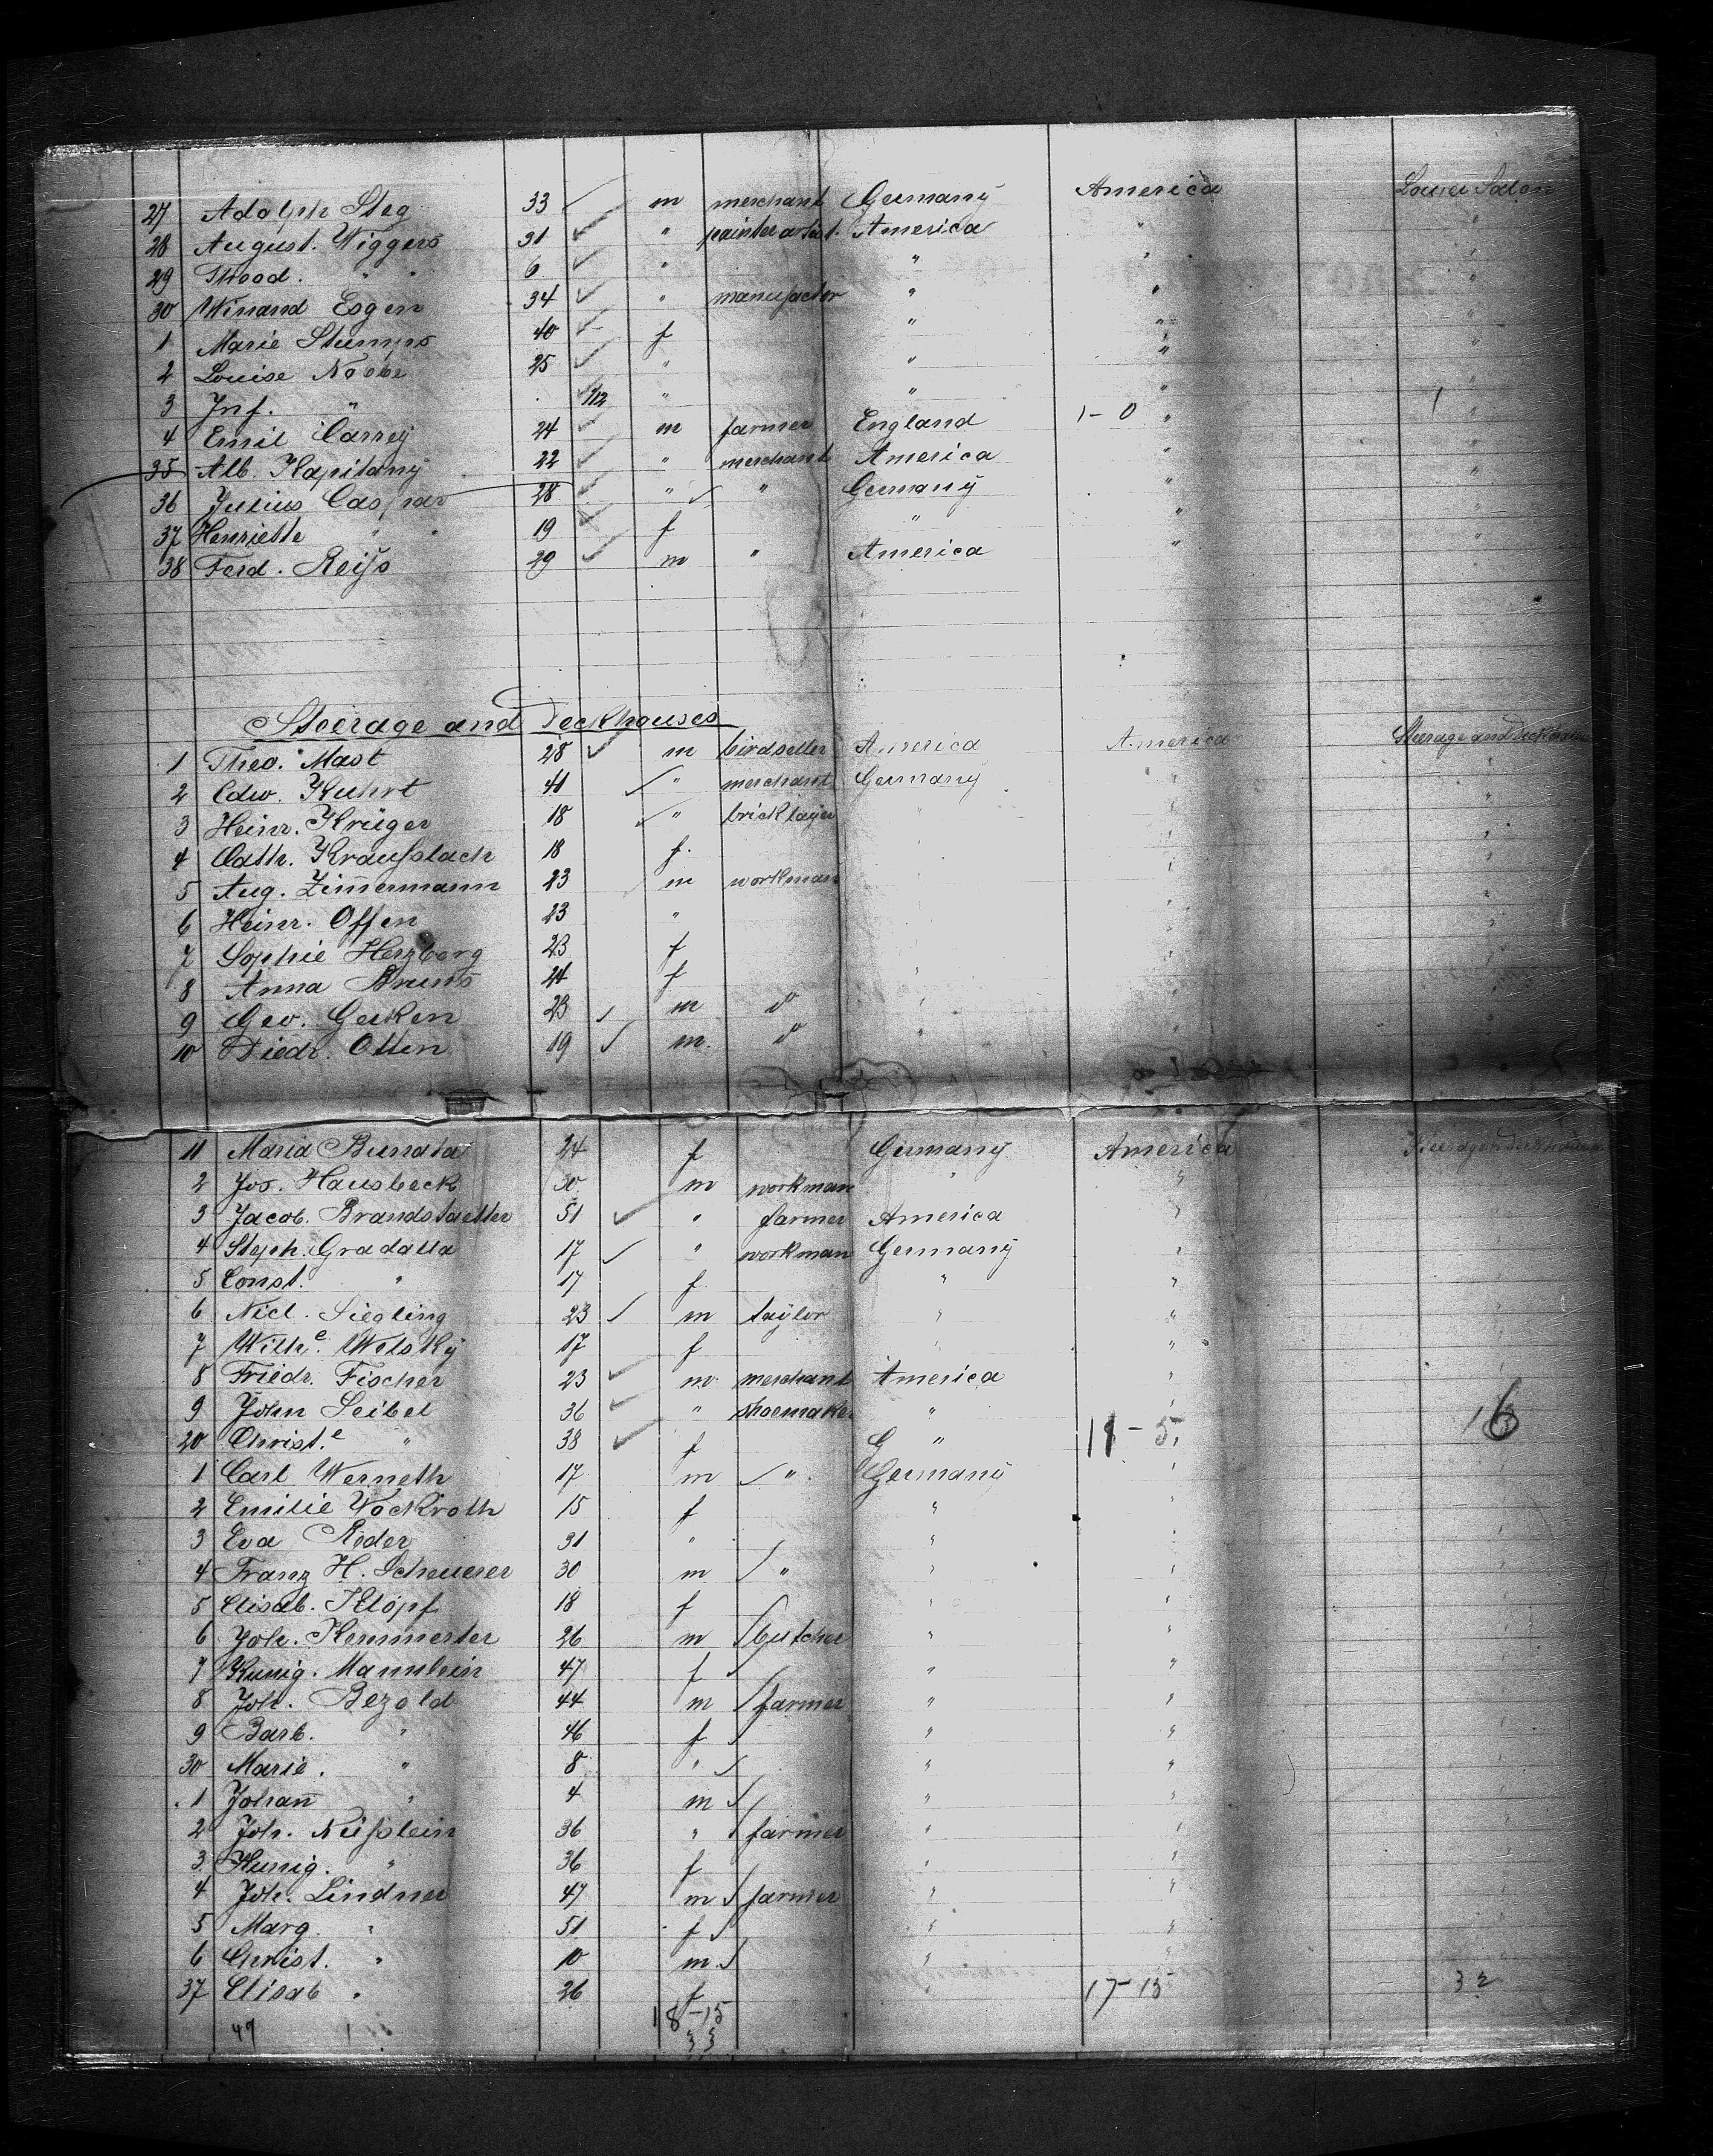 27 Adolph Steg 33 m merchant Germany America Lower Salon
28 August. Wiggers 31 " painter artist. America " "
29 Theod. " " 6 " " " "
30 Winand Esgen 34 " manufactor " " "
1 Marie Stumps 40 f " " "
2 Louise Noobe 25 " " " "
3 Inf. " 1/12 " " " 1
4 Emil Carrey 24 m farmer England 1-0 " "
35 Alb. Kapitany 22 " merchant America " "
36 Julius Caspar 28 " " Germany " "
37 Henriette " " 19 f " " "
38 Ferd. Reiſs 29 m " America " "
Steerage and Deckhouses
1 Theo. Mast 28 m birdseller America America Steerage and Deckhouses
2 Edw. Kuhrt 41 " merchant Germany " "
3 Heinr. Krüger 18 " bricklayer " " "
4 Cath. Krauſslach 18 f. " " "
5 Aug. Zim̄ermann 23 m workman " " "
6 Heinr. Offen 23 " " " "
7 Sophie Herzberg 23 f " " "
8 Anna Bruns 24 f " " "
9 Geo. Gerken 23 m do " " "
10 Diedr. Otten 19 m. do " " "
11 Maria Bunata 24 f Germany America Steerage Deckhouses
2 Jos. Hausbeck 30 m workman " " "
3 Jacob. Brandstaetter 51 " farmer America " "
4 Steph. Gradalla 17 " workman Germany " "
5 Const. " 17 f " " "
6 Nicl. Siegling 23 m taylor " " "
7 Wilhe. Welsky 17 f " " "
8 Friedr. Fischer 23 m merchant America " "
9 John Seibel 36 " shoemaker " "
20 Christ.e " 38 f G " 11-5 " 16
1 Carl Werneth 17 m " Germany " "
2 Emilie Wockroth 15 f " " "
3 Eva Reder 31 " " " "
4 Franz H. Scheuerer 30 m " " " "
5 Elisab. Klöpf 18 f " " "
6 Joh. Kemmerter 26 m butcher " " "
7 Kunig. Mannlein 47 f " " "
8 Joh. Bezold 44 m farmer " " "
9 Barb. " 46 f " " "
30 Marie. " 8 " " " "
1 Johan̄ " 4 m " " "
2 Joh. Nüſslein 36 " farmer " " "
3 Kunig. " 36 f " " "
4 Joh. Lindner 47 m farmer " " "
5 Marg. " 51 f " " "
6 Christ. " 10 m " " "
37 Elisab " 26 f 17-15 32
49 1 18-15
33